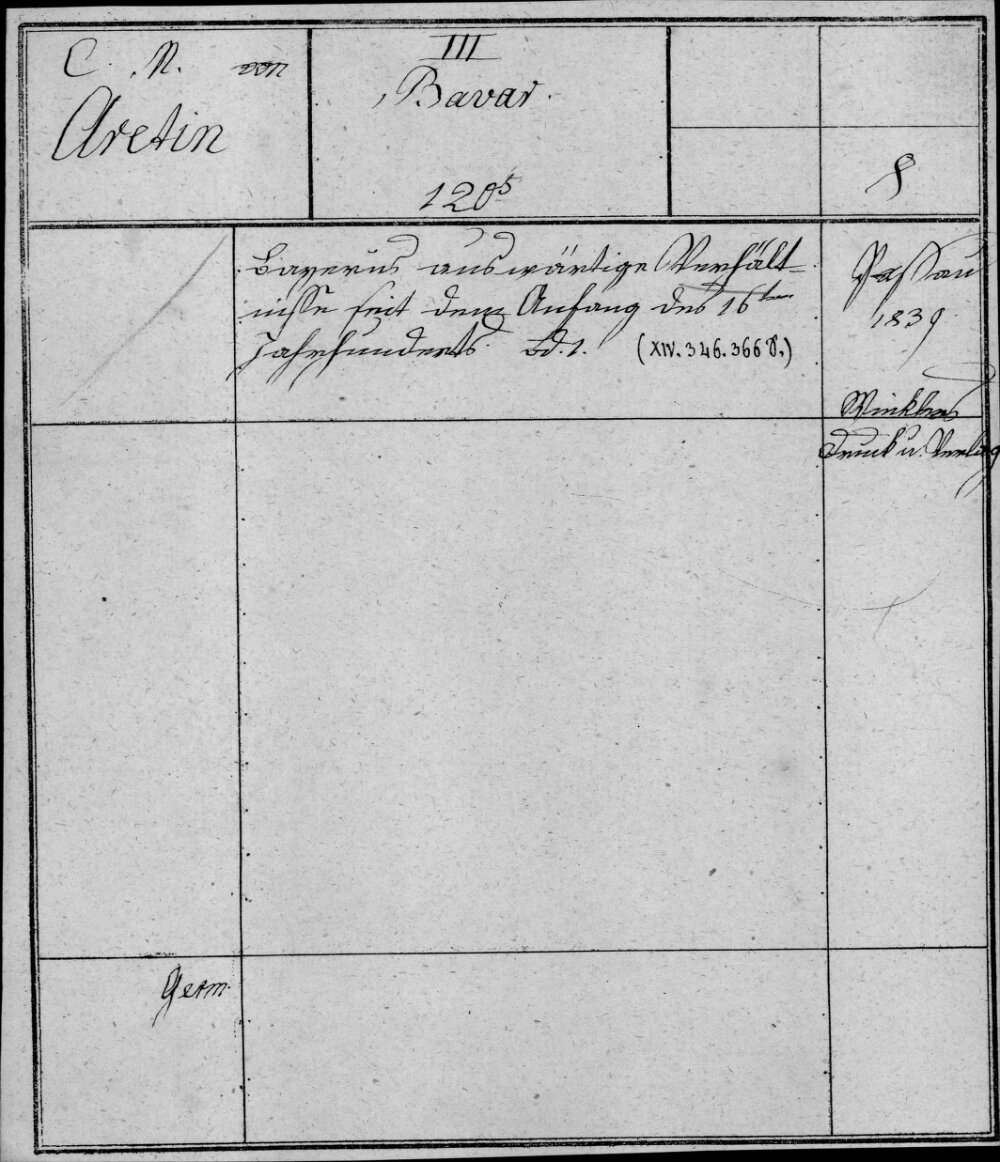 C. M. von
Aretin
III
Bavar.
120⁵
8
Bayerns auswärtige Verhält=
nisse seit dem Anfang des 16ten
Jahrhunderts. Bd. 1. (XIV. 346. 366 S.)
Passau
1839
Winkler
Druck u. Verlag
Germ.